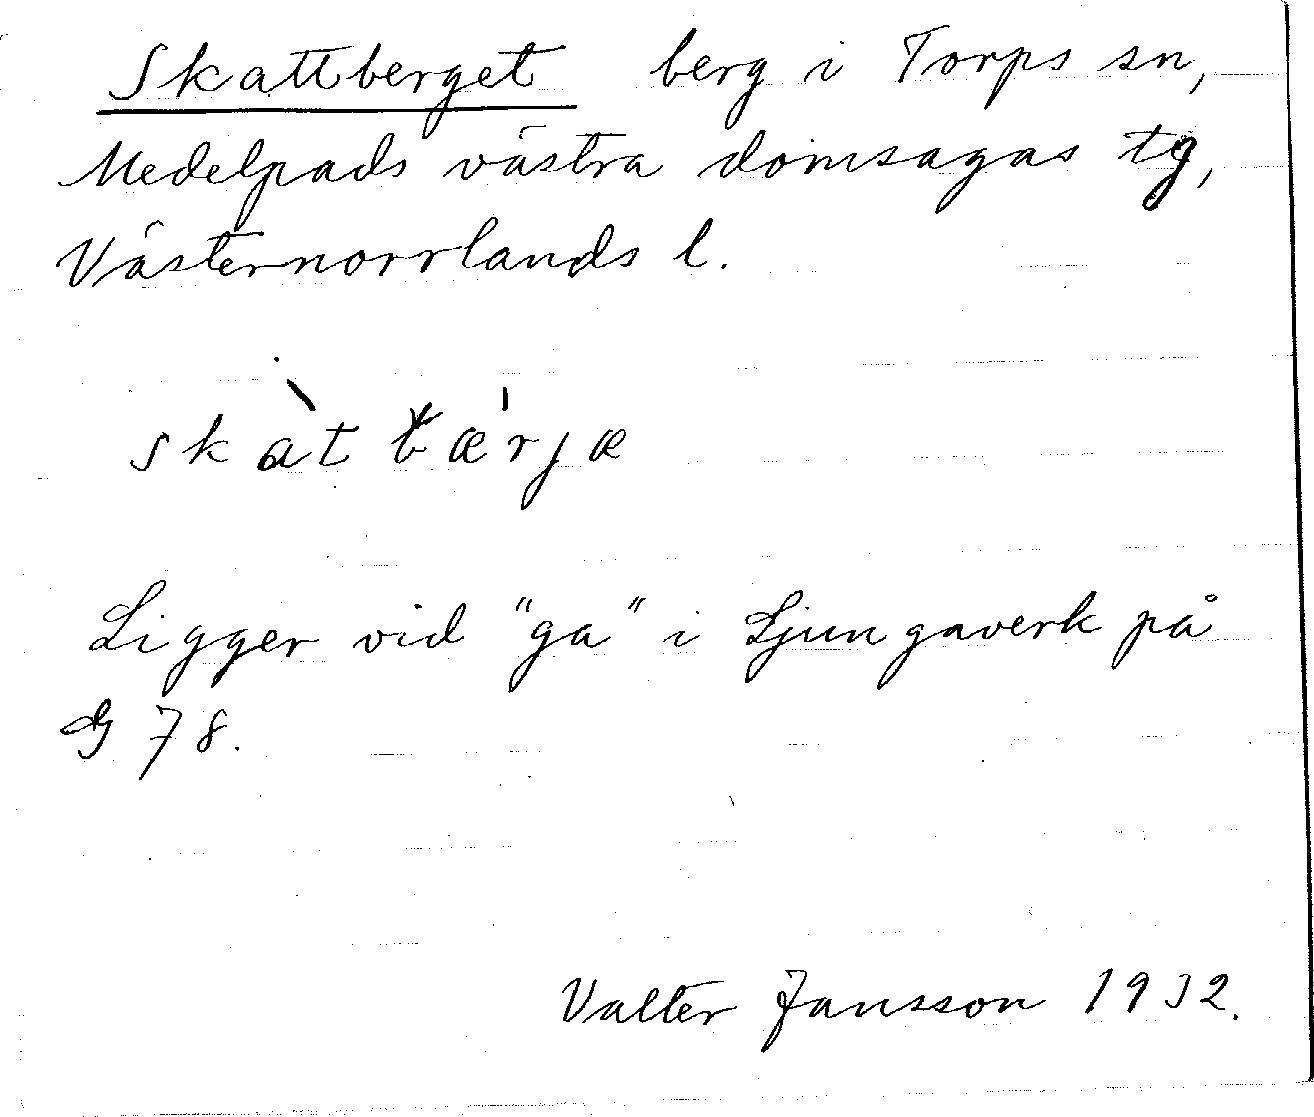 Skattberget berg i Torps sn,
Medelpads västra domsagas tg,
Västernorrlands l.
skàtbæ'rjæ
Ligger vid "ga" i Ljungaverk på
G 78.
Valter Jansson 1932.